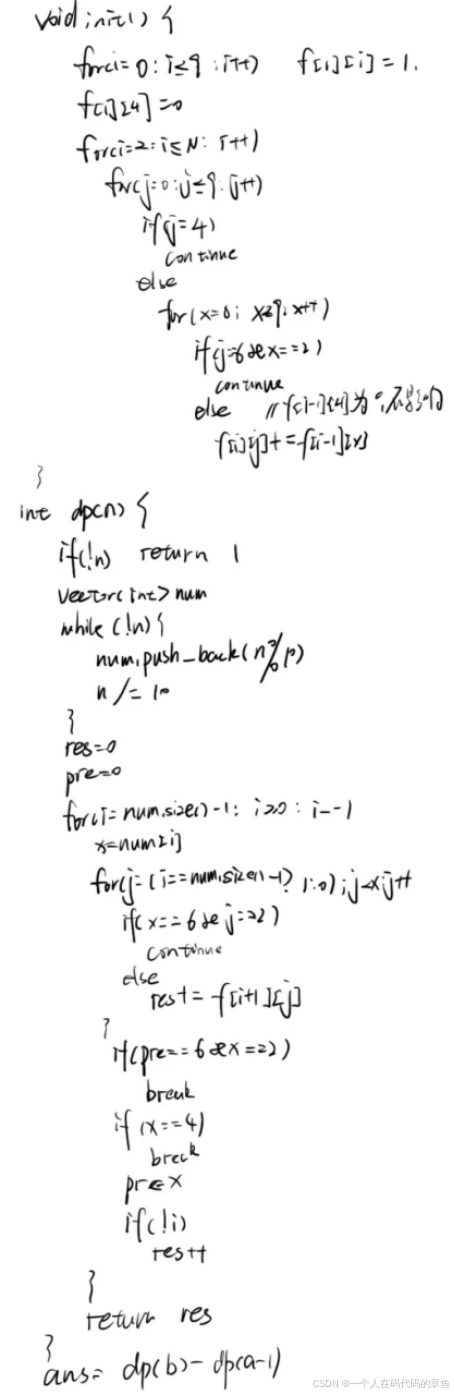 void init() {
for(i=0; i≤9; i++) f[1][i]=1.
f[1][4]=0
for(i=2; i≤N; i++)
for(j=0; j≤9; j++)
if(j=4)
continue
else
for(x=0; x≤9; x++)
if(j=6&&x==2)
continue
else //f[i-1][4]为0,不影响
f[i][j]+=f[i-1][x]
}
int dp(n) {
if(!n) return 1
vector<int> num
while(!n){
num.push_back(n%10)
n/=10
}
res=0
pre=0
for(i=num.size()-1; i≥0; i--)
x=num[i]
for(j=(i==num.size()-1? 1:0); j<x; j++
if(x==6&&j==2)
continue
else
res+=f[i+1][j]
}
if(pre==6&&x==2)
break
if(x==4)
break
pre=x
if(!i)
res++
}
return res
}
ans= dp(b)-dp(a-1)
CSDN @一个人在码代码的章鱼